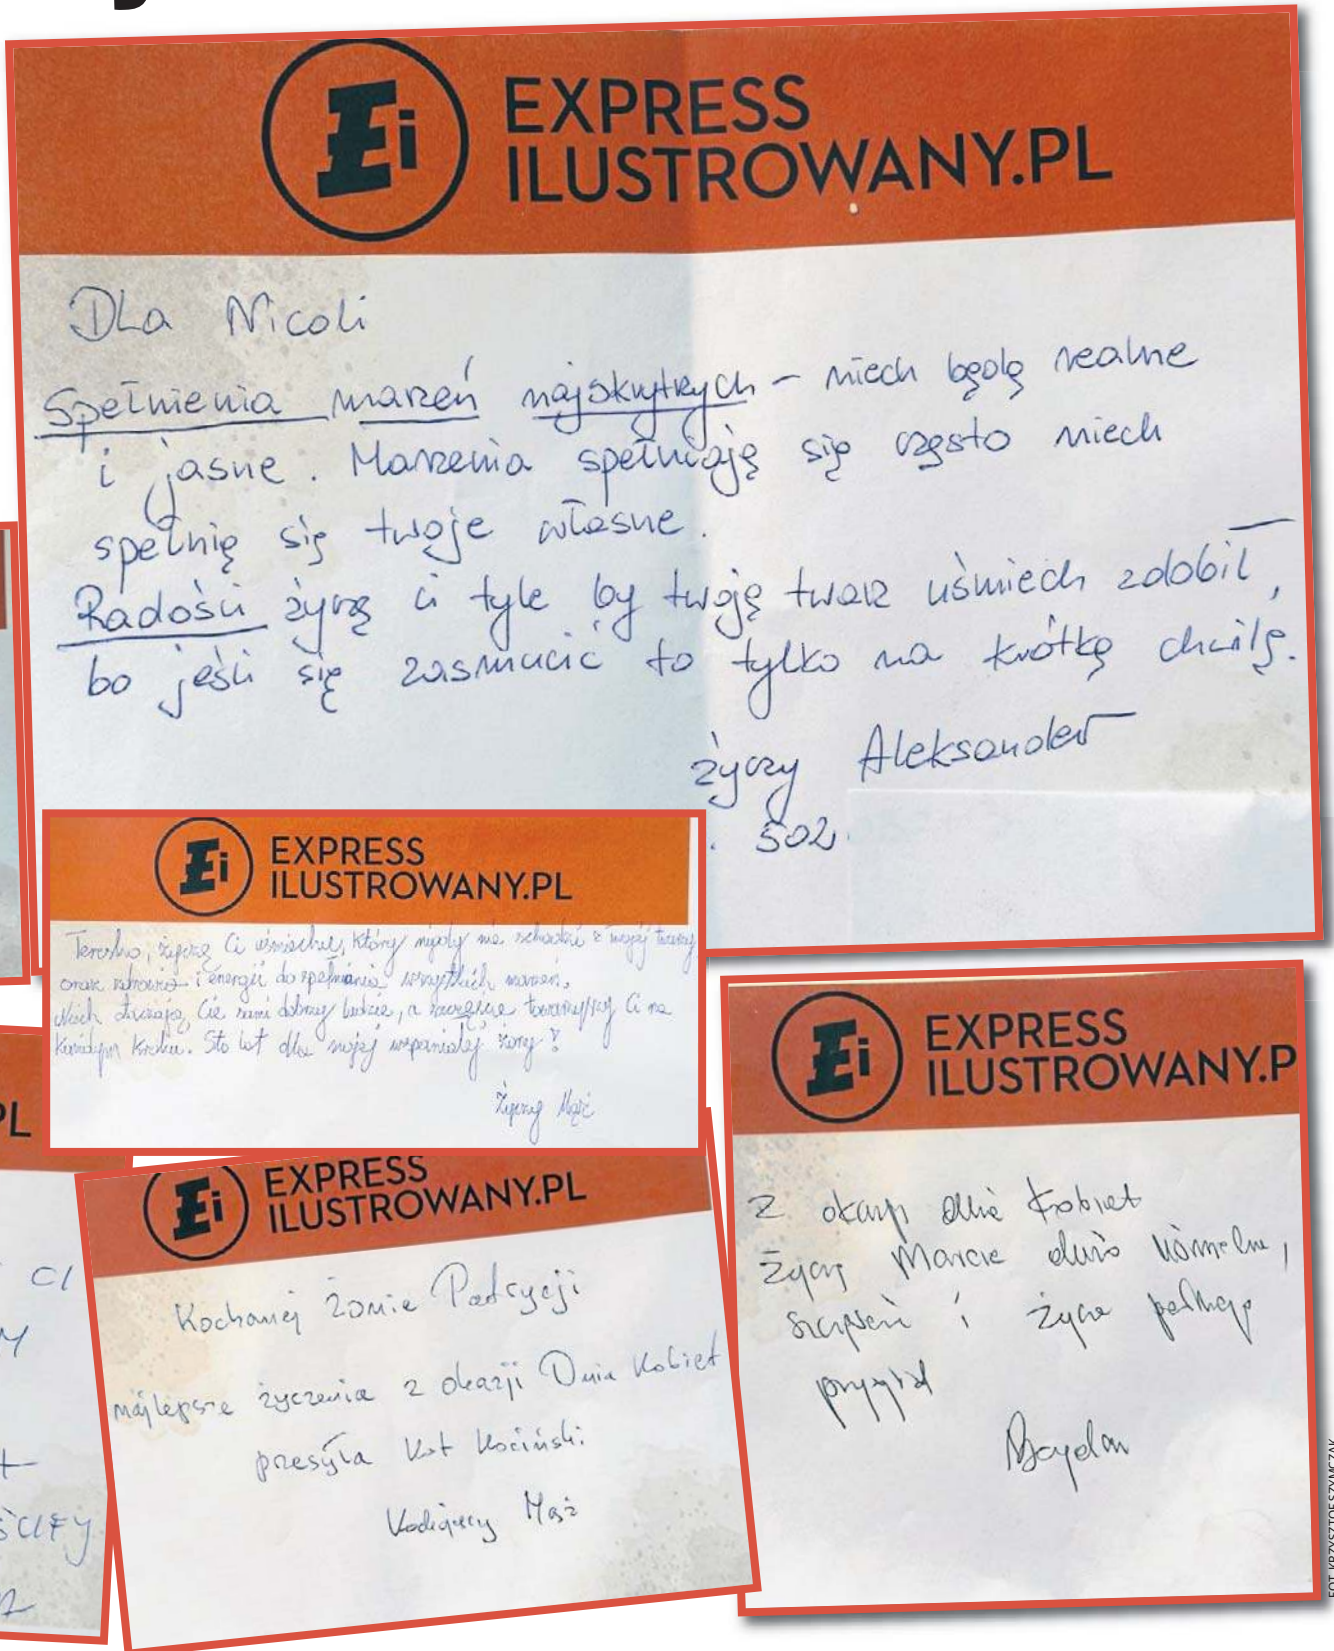 Ei EXPRESS
ILUSTROWANY.PL
Dla Nicoli
Spełnienia marzeń najskrytszych – niech będą realne
i jasne. Marzenia spełniają się często niech
spełnią się twoje własne.
Radości życzę ci tyle by twoją twarz uśmiech zdobił,
bo jeśli się zasmucić to tylko na krótką chwilę.
życzy Aleksander
502.
Ei EXPRESS
ILUSTROWANY.PL
życzę Ci uśmiechu, który nigdy nie schodzi z twojej twarzy
oraz zdrowia i energii do spełniania wszystkich marzeń.
Niech otaczają Cię sami dobrzy ludzie, a szczęście towarzyszy Ci na
każdym kroku. Sto lat dla mojej wspaniałej żony!
Życzy Mąż
Ei EXPRESS
ILUSTROWANY.PL
Kochanej Żonie Patrycji
najlepsze życzenia z okazji Dnia Kobiet
przesyła Kot Kociński
Kochający Mąż
Ei EXPRESS
ILUSTROWANY.P
Z okazji dnia kobiet
Życzę Marcie dużo uśmiechu,
i życia pełnego
przygód
Bogdan
PL
CI
FOT. KRZYSZTOF SZYMCZAK